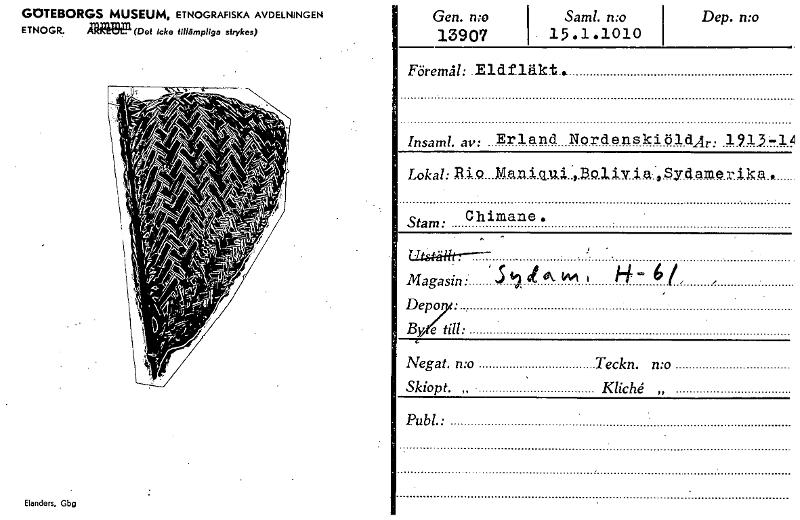 GÖTEBORGS MUSEUM, ETNOGRAFISKA AVDELNINGEN
ETNOGR. ARKEOL. (Det icke tillämpliga strykes)
Gen. n:o Saml. n:o Dep. n:o
13907 15.1.1010
Föremål: Eldfläkt.
Insaml. av: Erland Nordenskiöld År: 1913-14
Lokal: Rio Maniqui, Bolivia, Sydamerika.
Stam: Chimane.
Utställt:
Magasin: Sydam. H-61
Depon.:
Byte till:
Negat. n:o Teckn. n:o
Skiopt. „ Kliché „
Publ.:
Elanders, Gbg